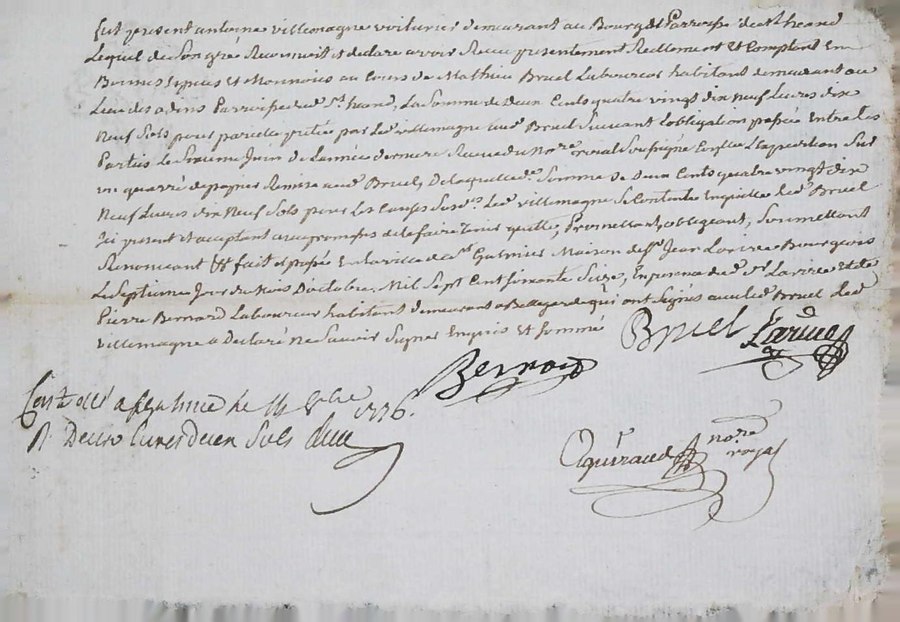 fut present antoine villemagne voiturier demeurant au Bourg et Parroisse de st heand
Lequel de Son gré Reconnoit et declare avoir Receu presentement Reellement Et Comptant En
Bonnes Especes et Monnoies au Cours de Mathieu Bruel Laboureur habitant demeurant au
Lieu des adins Parroisse dud. St. heand, La Somme de Deux Cents quatre vingt dix Neuf Livres dix
Neuf Sols pour pareille pretée par Led. villemagne aud. Bruel Suivant L'obligation passée Entre les
Parties le Juin de L'année derniere Receue du nore. roial Soussigné
un quarré de papier Remise aud. Bruel, De laquelle de. Somme de Deux Cents quatre vingt dix
Neuf Livres dix Neuf Sols pour Les Causes Susd. Led. villemagne Se Contente En quitte Led. Bruel
Ici present et acceptant avec promesse de le faire tenir quitte, Promettant, obligeant, Soumettant
Renonceant &c fait et passé En la ville de St. Galmier Maison de Sr. Jean Larive Bourgeois
Le Septieme Jour du Mois D'octobre Mil Sept Cent Seize, En presence de d. Sr. Larive et de
Pierre Bernard Laboureur habitant demeurant a Bellegarde qui ont Signés avec led. Bruel Led.
villemagne a Declaré ne Savoir Signer Enquis et Sommé
Bruel Larive
Bernard
a St galmier le 14 8bre 1776.
R Deux livres deux Sols
nore.
royal